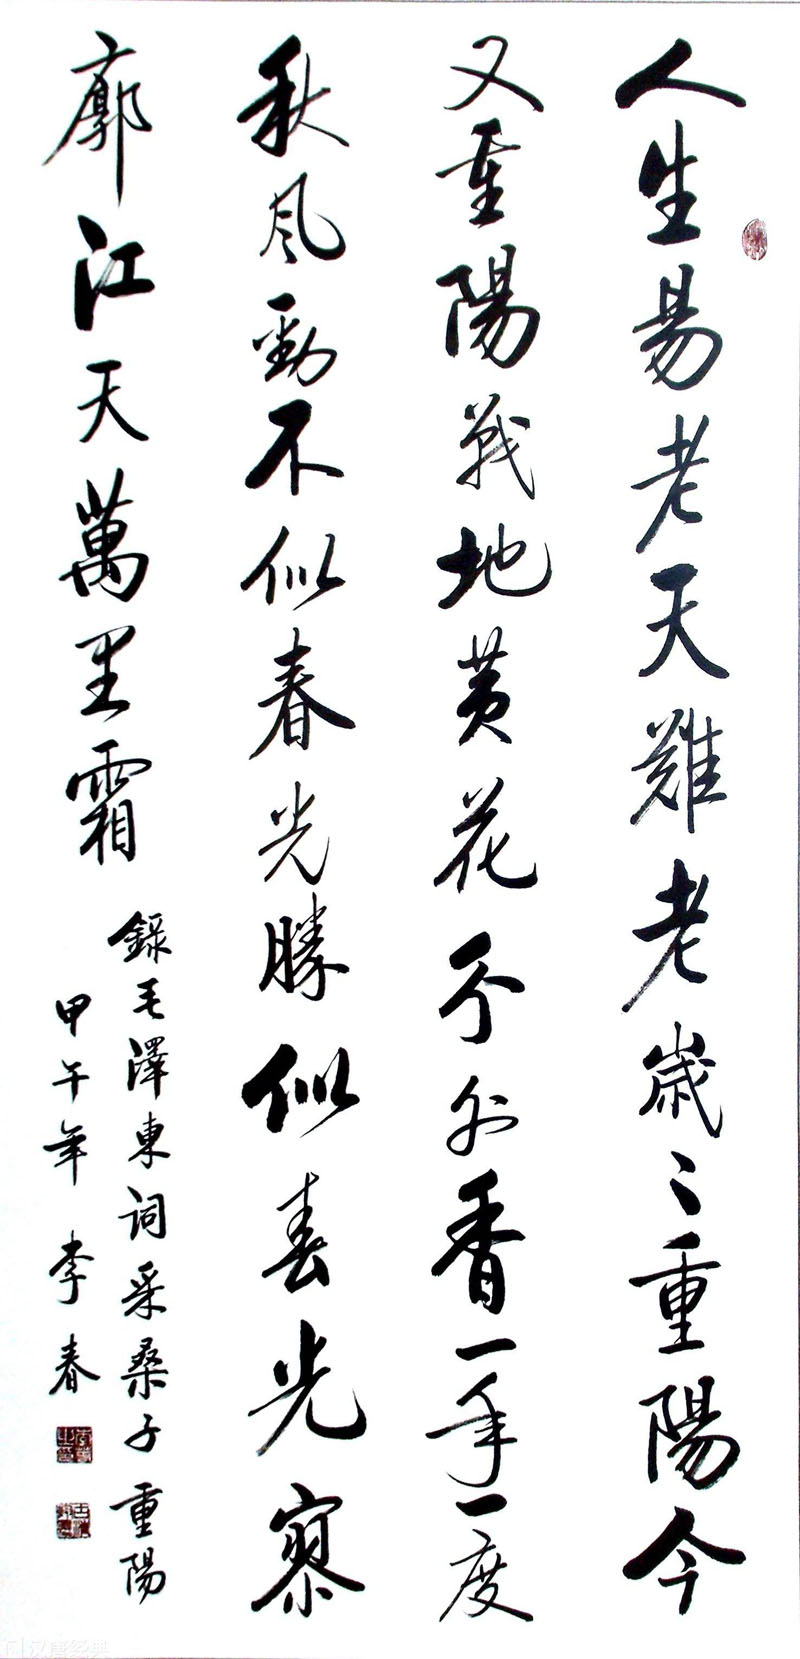 人生易老天難老歲々重陽今
又重陽戰地黄花分外香一年一度
秋風勁不似春光勝似春光寥
廓江天萬里霜
錄毛澤東詞采桑子重陽
甲午年 李春
汉唐经典